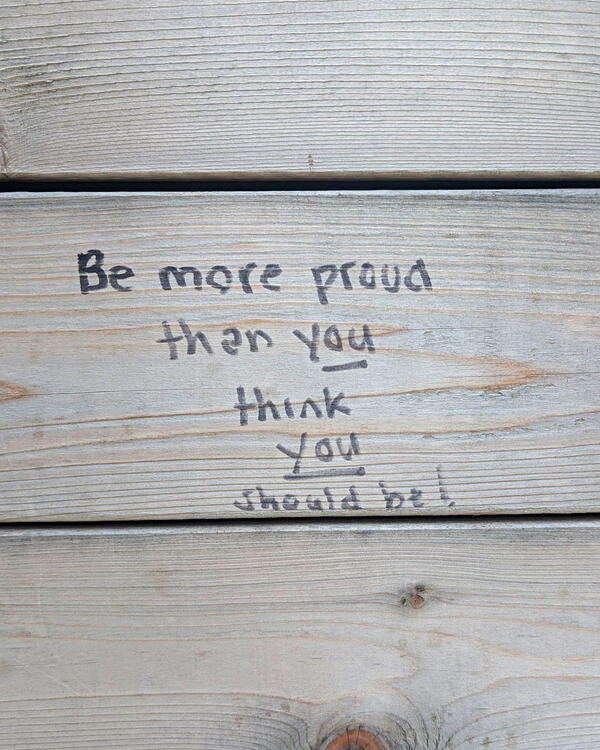 Be more proud
than you
think
you
should be!